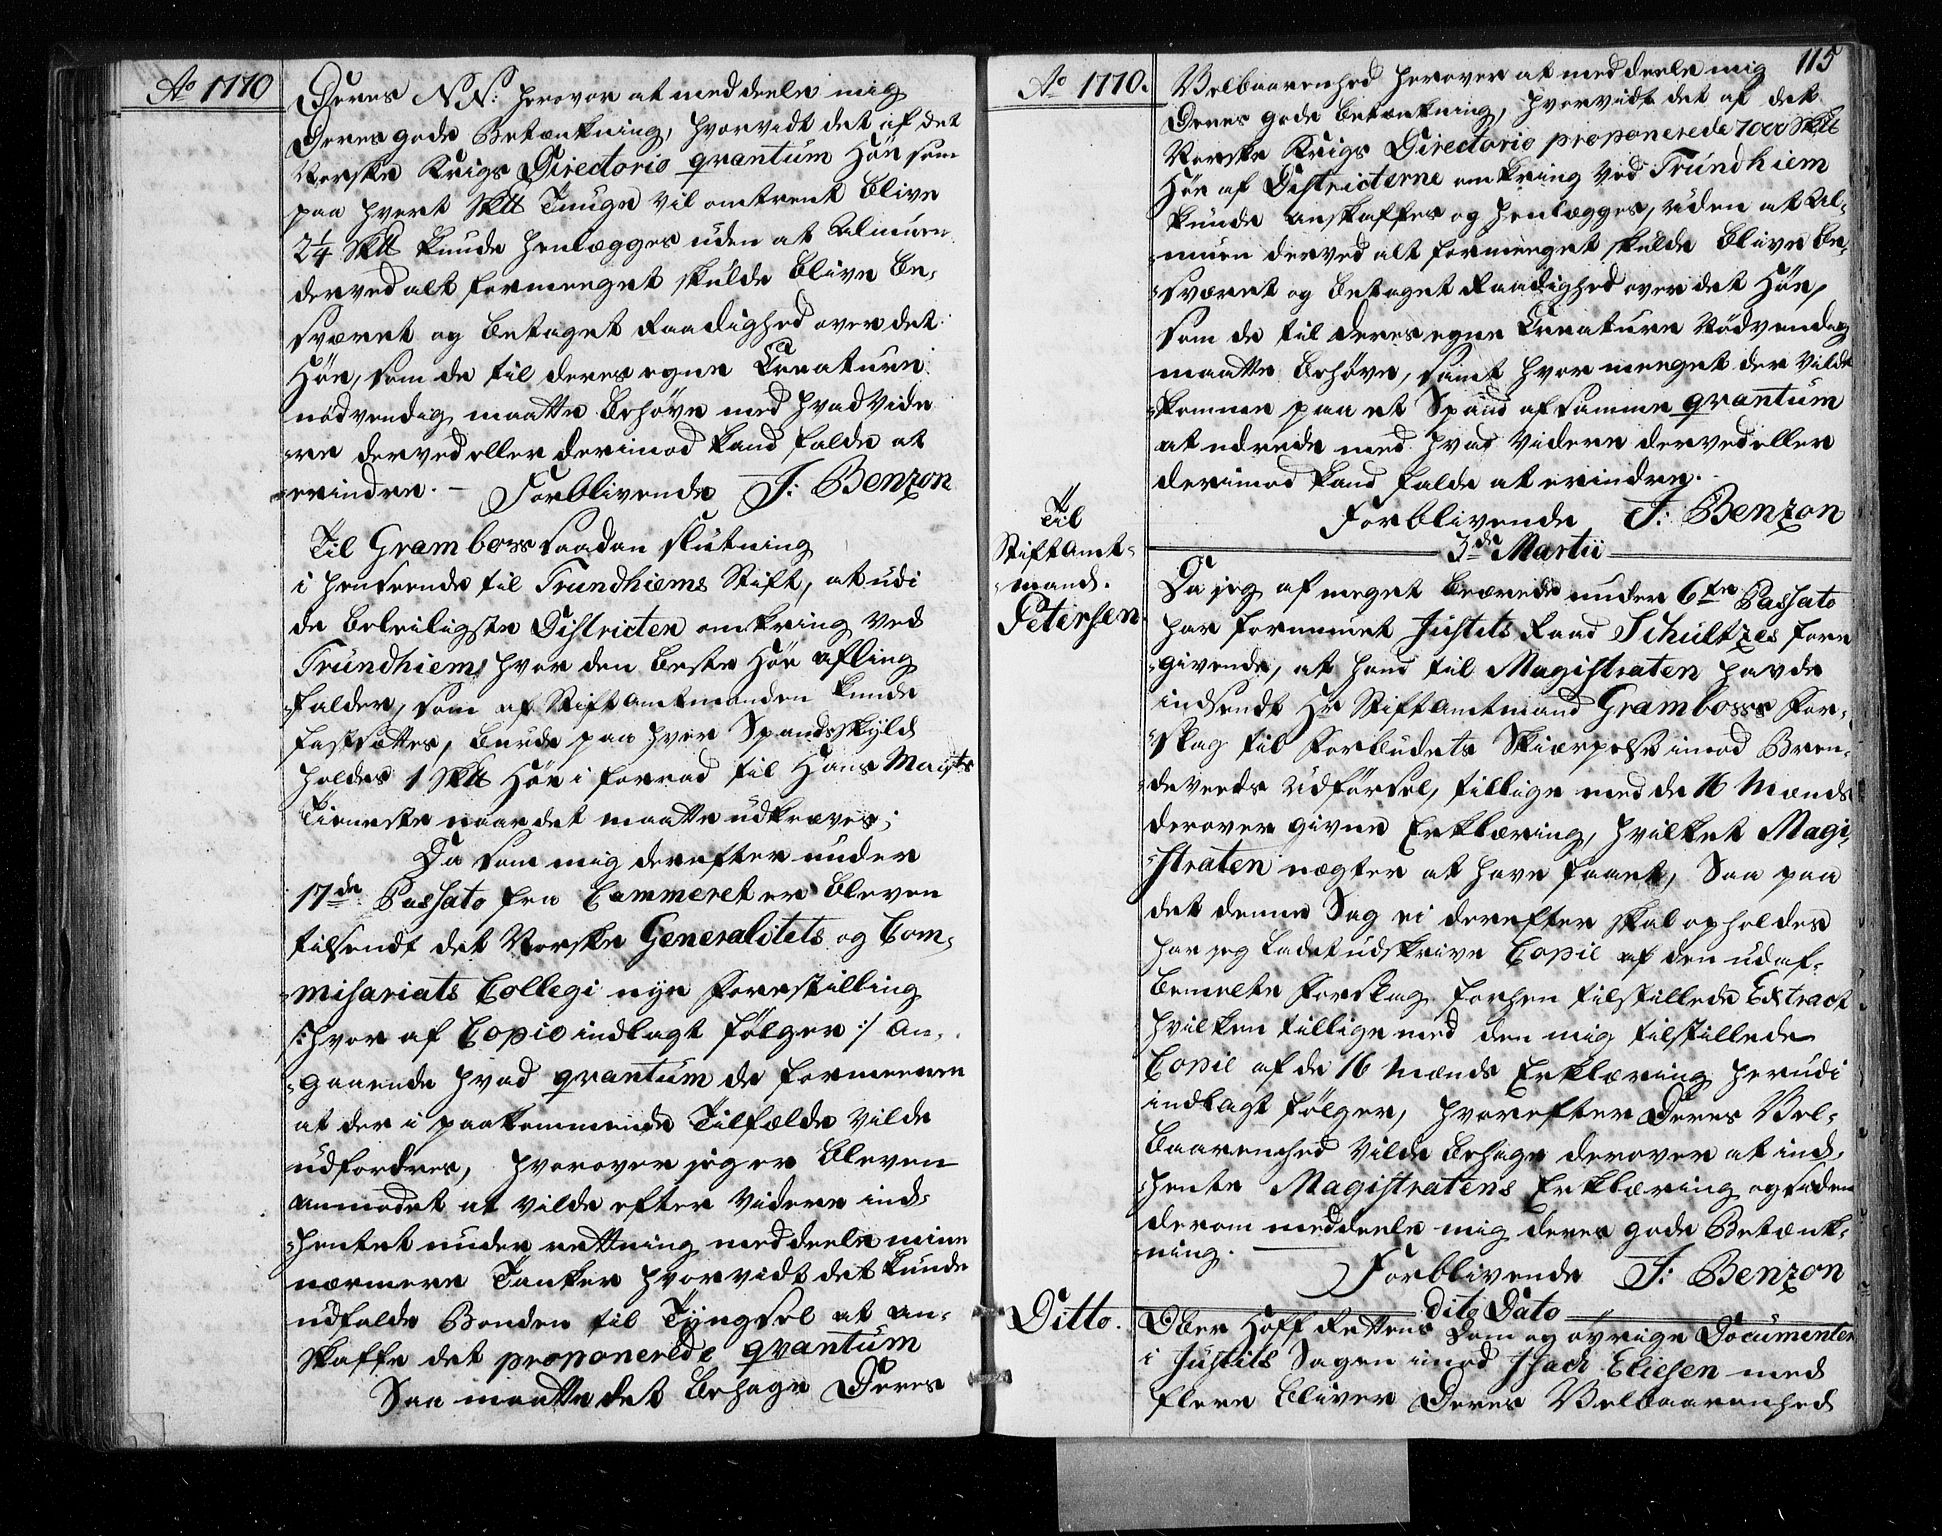 Ao 1770
Deres NN: herover at meddeele mig
Deres gode Betænkning, hvorvidt det af det
Norske Krigs Directorio qvantum Höe som
paa hvert Sktt Tunge vil omtrent blive
2 1/4 Sktt kunde henlægges uden at Almuen
derved alt formeeget skulde blive be-
sværet og betaget Raadighed over det
Höe, som de til deres egne Creature
nödvendig maatte behöve med hvad vide
-re derved eller derimod kand falde at
-erindre. - Forblivende J: Benzon
Til Grambows saadan slutning
i henseende til Trundhiems Stift, at udi
de beleiligste Districter omkring ved
Trundhiem, hvor den beste Höe afling
falder, som af Stiftamtmanden kunde
fastsættes, burde paa hver Spandskyld
holdes 1 Sktt Höe i forraad til Hans Maysts
Tieneste naar det maatte udkræves;
Da som mig derefter under
17de Passato fra Cammeret er bleven
tilsendt det Norske Generalitets og Com-
-misariats Collegi nye Forestilling
/: hvor af Copie indlagt fölger :/ an-
-gaaende hvad qvantum de formeener
at der i paakommende Tilfælde vilde
udfordres, hvorover jeg er bleven
anmodet at vilde efter videre ind-
-hentet underrettning meddeele mine
nærmere Tanker hvorvidt det kunde
udfalde Bonden til Tyngsel at an-
skaffe det proponerede qvantum
Saa maatte det behage Deres
115
Ao 1770.
Velbaarenhed herover at meddeele mig
Deres gode betænkning, hvorvidt det af det
Norske Krigs Directorio proponerede 7000 Sktt
Höe af Districterne omkring ved Trundhiem
kunde anskaffes og henlægges, uden at Al-
-muen derved alt formeeget skulde blive be-
-sværet og betaget Raadighed over det Höe,
som de til deres egne Creature Nödvendig
maatte behöve, samt hvor meeget der vilde
komme paa et Spand af samme qvantum
at udrede med hvad videre derved eller
derimod kand falde at erindre.
Forblivende J: Benzon
3de Martii
Til
Stiftamt-
-mand.
Petersen
Da jeg af meget bærede under 6te Passato
har fornemmet Justits Raad Schultzes fore
-givende, at hand til Magistraten havde
indsendt Hr Stiftamtmand Grambows For-
-slag til Forbudets Skiærpelse imod Bren-
-deviins Udförsel, tillige med de 16 Mænds
derover givne Erklæring, hvilket Magi-
-straten nægter at have faaet, Saa paa
det denne Sag ei derefter skal opholdes
har jeg ladet udskrive Copie af den udaf-
bemelte Forslag forhen tilstillede Extract
hvilken tillige med den mig tilstillede
Copie af de 16 Mænds Erklæring herudi
indlagt fölger, hvorefter Deres Vel-
baarenhed vilde behage derover at ind-
-hente Magistratens Erklæring og siden
derom meddeele mig deres gode Betænk-
-ning.
Forblivende J: Benzon
dito Dato
Ditto.
Ober Hoff Rettens Dom og övrige Documenter
i Justits Sagen imod Isach Eliesen med
flere bliver Deres Velbaarenhed